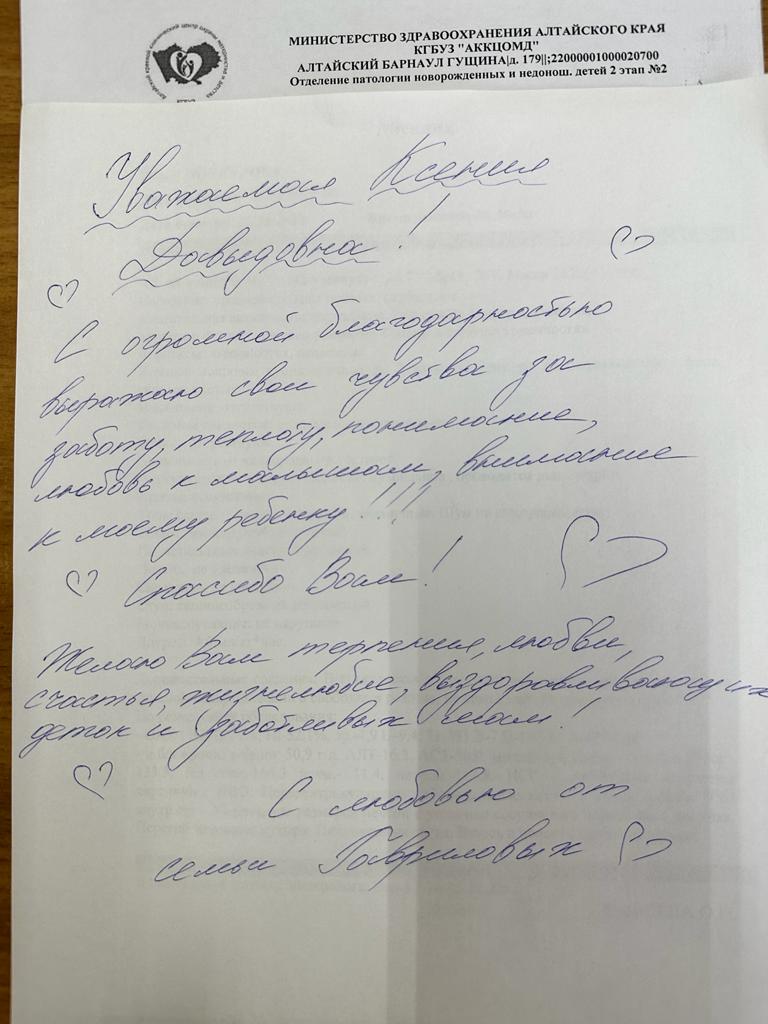 МИНИСТЕРСТВО ЗДРАВООХРАНЕНИЯ АЛТАЙСКОГО КРАЯ
КГБУЗ "АККЦОМД"
АЛТАЙСКИЙ БАРНАУЛ ГУЩИНА|д. 179||;22000001000020700
Отделение патологии новорожденных и недонош. детей 2 этап №2
Уважаемая Ксения
Давыдовна!
С огромной благодарностью
выражаю свои чувства за
заботу, теплоту, понимание,
любовь к малышам, внимание
к моему ребенку!!!!
Спасибо Вам!
Желаю Вам терпения, любви,
счастья, жизнелюбие, выздоравливающих
деток и заботливых мам!
С любовью от
семьи Гавриловых